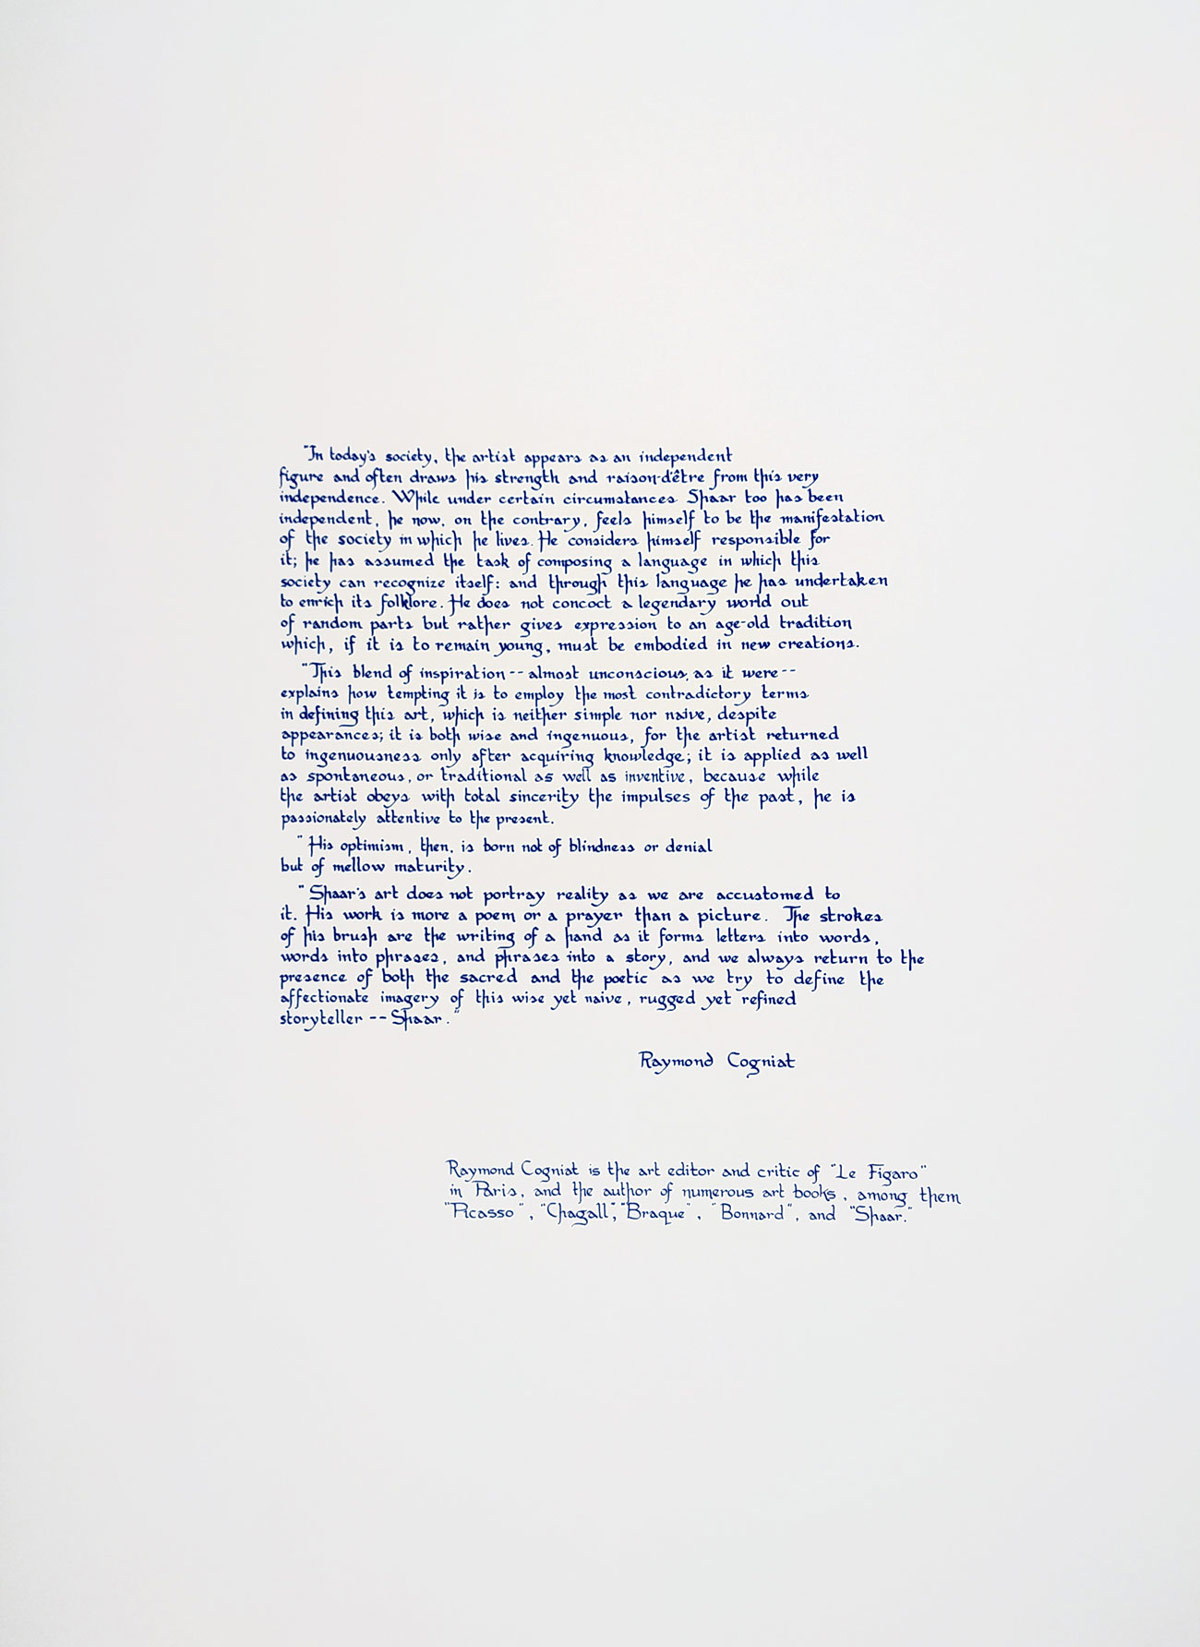 "In today's society, the artist appears as an independent
figure and often draws his strength and raison-d'être from this very
independence. While under certain circumstances Shaar too has been
independent, he now, on the contrary, feels himself to be the manifestation
of the society in which he lives. He considers himself responsible for
it; he has assumed the task of composing a language in which this
society can recognize itself: and through this language he has undertaken
to enrich its folklore. He does not concoct a legendary world out
of random parts but rather gives expression to an age-old tradition
which, if it is to remain young, must be embodied in new creations.
"This blend of inspiration -- almost unconscious, as it were --
explains how tempting it is to employ the most contradictory terms
in defining this art, which is neither simple nor naive, despite
appearances; it is both wise and ingenuous, for the artist returned
to ingenuousness only after acquiring knowledge; it is applied as well
as spontaneous, or traditional as well as inventive, because while
the artist obeys with total sincerity the impulses of the past, he is
passionately attentive to the present.
"His optimism, then, is born not of blindness or denial
but of mellow maturity.
"Shaar's art does not portray reality as we are accustomed to
it. His work is more a poem or a prayer than a picture. The strokes
of his brush are the writing of a hand as it forms letters into words,
words into phrases, and phrases into a story, and we always return to the
presence of both the sacred and the poetic as we try to define the
affectionate imagery of this wise yet naive, rugged yet refined
storyteller -- Shaar."
Raymond Cogniat
Raymond Cogniat is the art editor and critic of "Le Figaro"
in Paris, and the author of numerous art books, among them
"Picasso", "Chagall", "Braque", "Bonnard", and "Shaar."